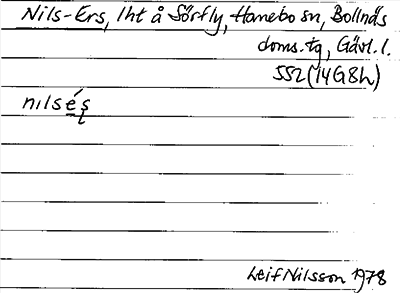 Nils-Ers, lht å Sörfly, Hanebo sn, Bollnäs
doms.tg, Gävl. l.
552 (14G8h)
nilsés
Leif Nilsson 1978